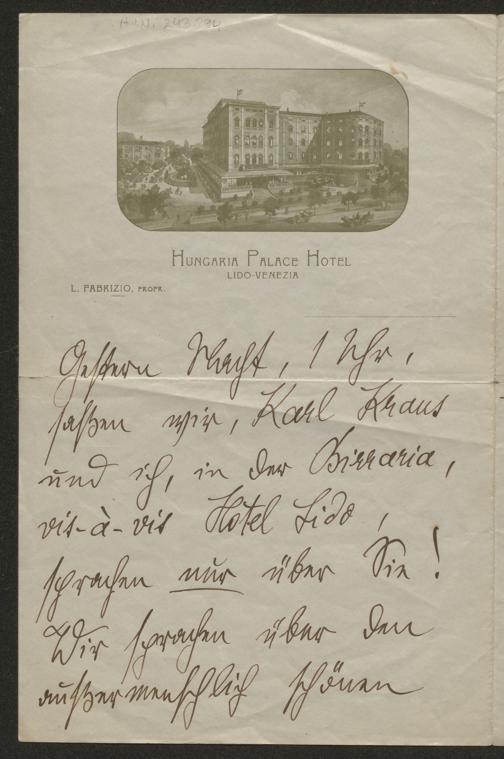 H.I.N. 243.294
HUNGARIA PALACE HOTEL
LIDO-VENEZIA
L. FABRIZIO, PROPR.
Gestern Nacht, 1 Uhr,
saßen wir, Karl Kraus
und ich, in der Birraria,
vis-à-vis Hôtel Lido,
sprachen nur über Sie!
Wir sprachen über den
außermenschlich schönen